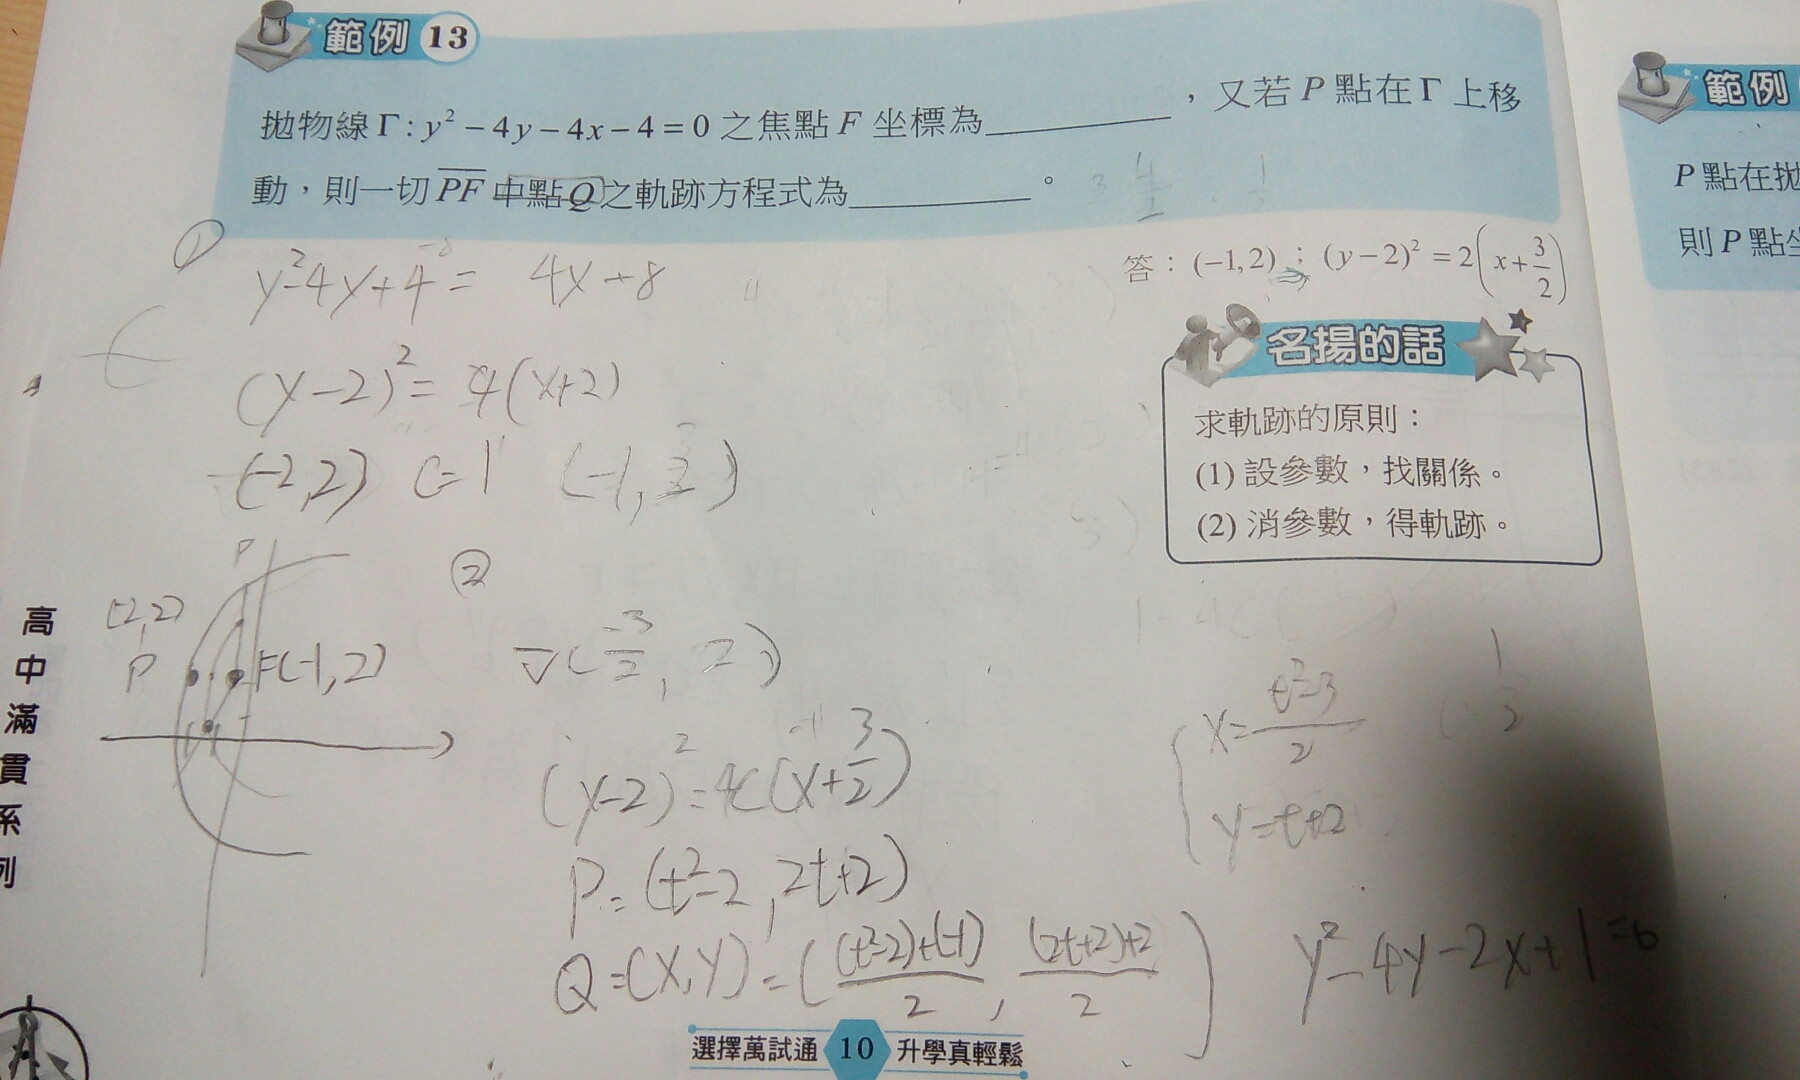 範例 13
拋物線 Γ : y² − 4y − 4x − 4 = 0 之焦點 F 坐標為__________,又若 P 點在 Γ 上移
動,則一切 PF 中點 Q 之軌跡方程式為__________。
答:(−1, 2) ; (y − 2)² = 2(x + 3/2)
名揚的話
求軌跡的原則:
(1) 設參數,找關係。
(2) 消參數,得軌跡。
①
y²-4y+4 = 4x+8
(y-2)² = 4(x+2)
(-2,2) C=1 (-1,2)
(-2,2)
P
P
F(-1,2)
②
V(-3/2, 2)
(y-2)² = 4c(x+3/2)
P=(t²-2, 2t+2)
Q=(x,y)=((t²-2)+(-1)/2, (2t+2)+2/2)
x=t²-3/2
y=t+2
y²-4y-2x+1=0
高中滿貫系列
選擇萬試通 10 升學真輕鬆
範例
P 點在拋
則 P 點坐